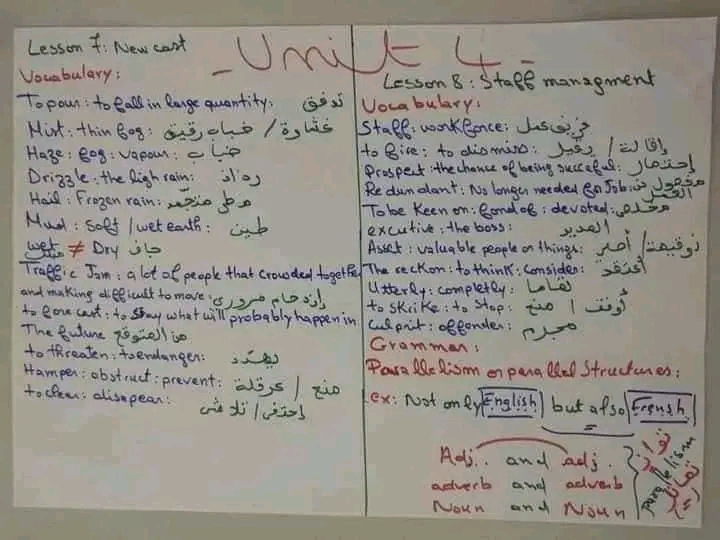 - Unit 4 -
Lesson 7: New cast
Vocabulary:
To pour: to fall in large quantity: تدفق
Mist: thin fog: غشاوة / ضباب رقيق
Haze: fog: vapour: ضباب
Drizzle: the ligh rain: رذاذ
Hail: Frozen rain: مطر متجمد
Mud: soft / wet earth: طين
wet ≠ Dry جاف
Traffic Jam: a lot of people that crowded together
and making difficult to move: إزدحام مروري
to fore cast: to stay what will probably happen in
The future من المتوقع
to threaten: to endanger: يهدد
Hamper: obstruct: prevent: منع / عرقلة
to clear: disapear: إختفى / تلاشى
Lesson 8: Staff managment
Vocabulary:
Staff: work force: فريق عمل
to fire: to dismiss: يقيل / إقالة
Prospect: the chance of being succeful: إحتمال
Redundant: No longer needed for Job: مفصول من العمل
To be Keen on: fond of: devoted: مخلص
excutive: the boss: المدير
Asset: valuable people or things:
The reckon: to think: consider: أعتقد
Utterly: completly: تماما
to skrike: to stop: منع
Culprit: offender: مجرم
Grammar:
Parallelism or parallel structures:
ex: Not only English but also Frensh
Adj. and adj.
adverb and adverb
Noun and Noun
parallelism